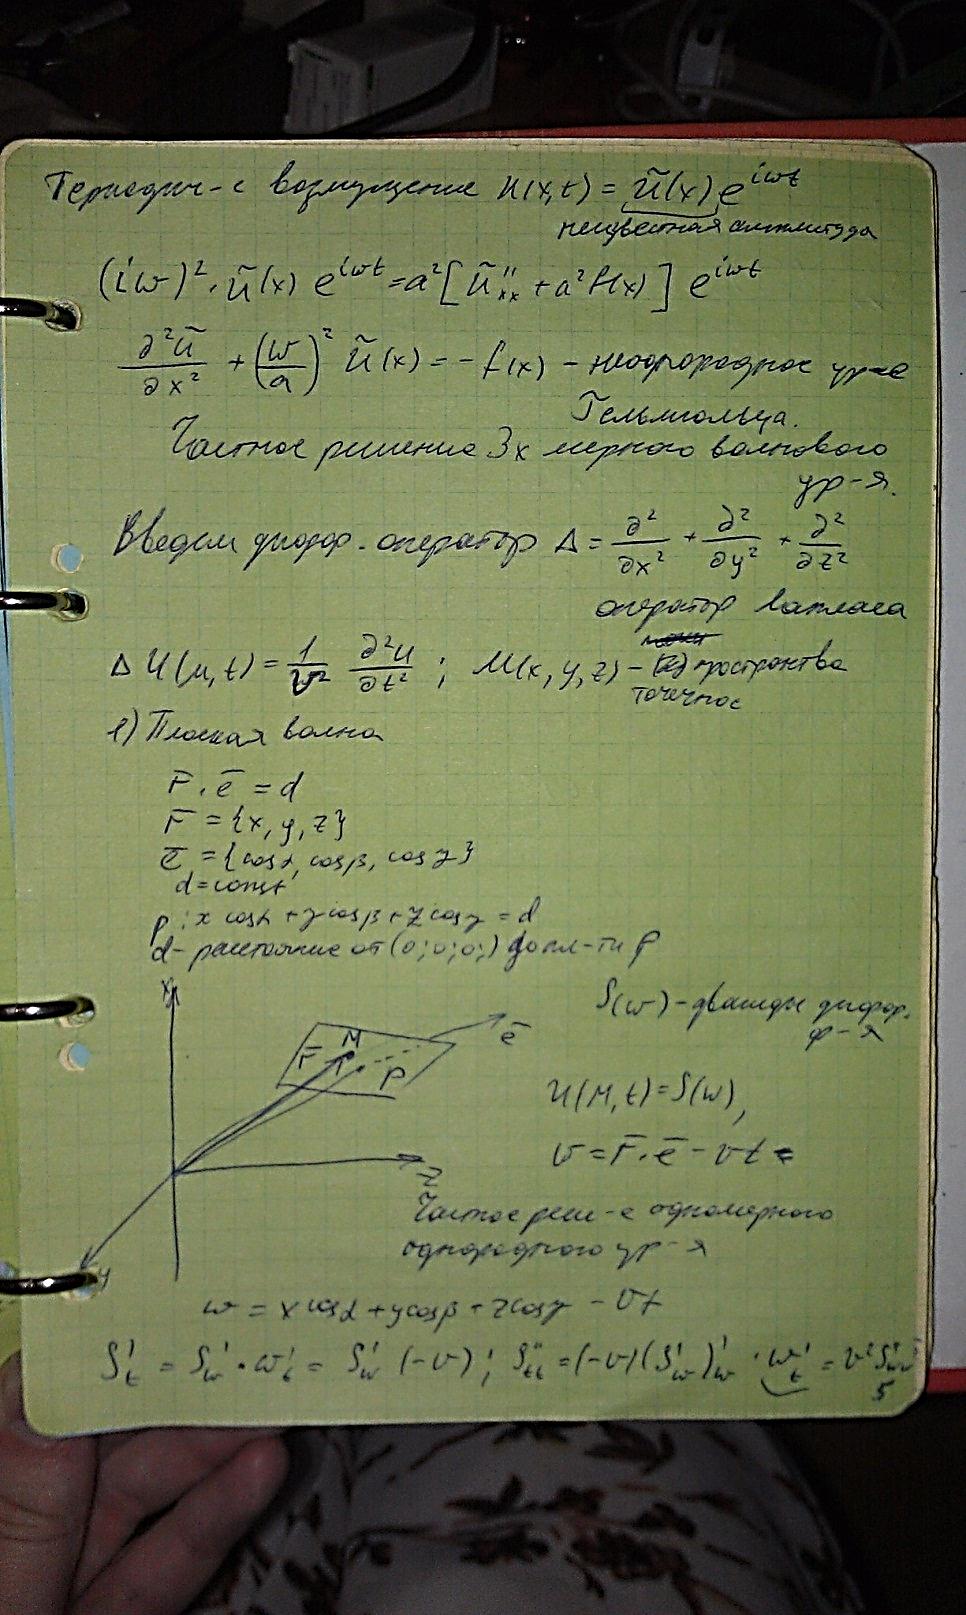 Периодич-е возмущение u(x,t) = ũ(x) e^{iωt}
неизвестная амплитуда
(iω)² · ũ(x) e^{iωt} = a² [ũ''ₓₓ + a² f(x)] e^{iωt}
∂²ũ/∂x² + (ω/a)² ũ(x) = - f(x) - неоднородное ур-е
Гельмгольца.
Частное решение 3х мерного волнового
ур-я.
Введем диффер. оператор Δ = ∂²/∂x² + ∂²/∂y² + ∂²/∂z²
оператор Лапласа
Δ U(м,t) = 1/v² ∂²u/∂t² ; M(x, y, z) - пространства
точечное
1) Плоская волна
r̄ · ē = d
r̄ = {x, y, z}
ē = {cosα, cosβ, cosγ}
d = const
p: x cosα + y cosβ + z cosγ = d
d - расстояние от (0; 0; 0;) до пл-ти P
X
S(w) - дважды диффер.
ф-я
M
r̄
ē
P
u(M, t) = S(w),
v = r̄ · ē - vt =
Z
Частное реш-е одномерного
однородного ур-я
y
w = x cosα + y cosβ + z cosγ - vt
S'ₜ = S'_w · w'ₜ = S'_w (-v) ; S''ₜₜ = (-v)(S'_w)'_w · w'ₜ = v² S''_ww
5